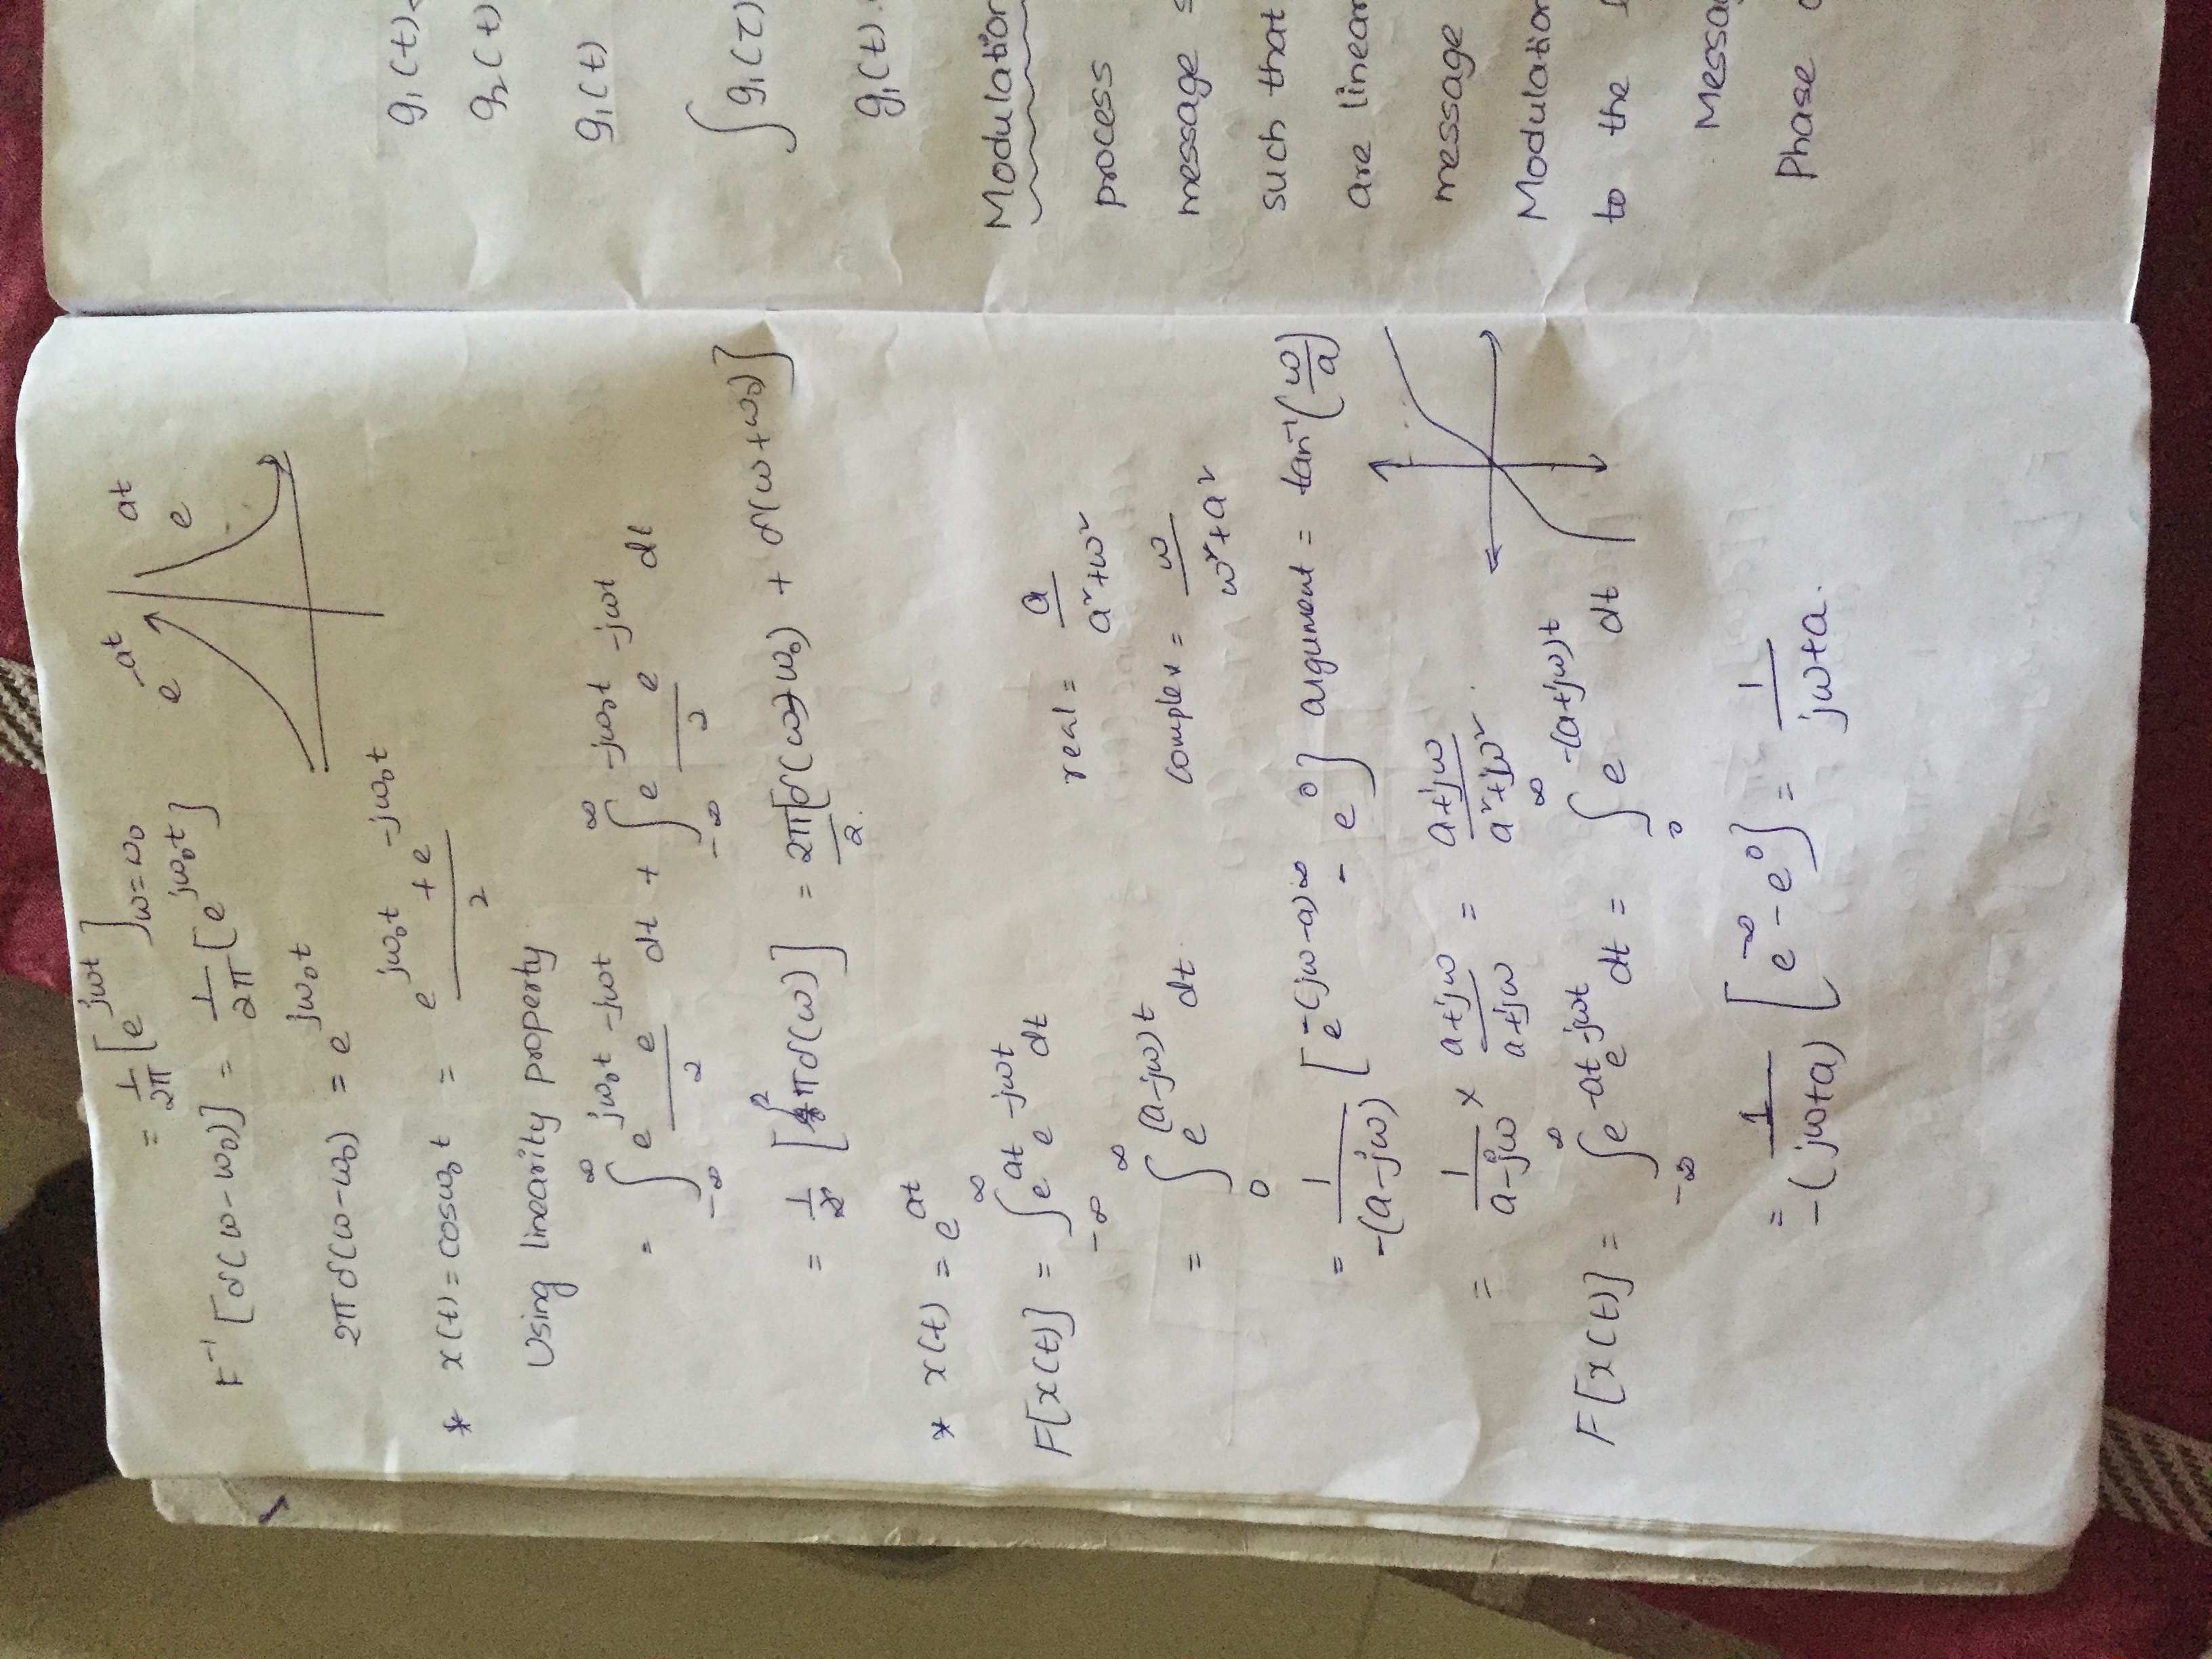 = 1/2π [e^{jωt}]_{ω=ω0}
e^{-at}
e^{at}
F^{-1} [δ(ω-ω0)] = 1/2π [e^{jω0t}]
2π δ(ω-ω0) = e^{jω0t}
* x(t) = cosω0t = (e^{jω0t} + e^{-jω0t})/2
Using linearity property
= ∫_{-∞}^{∞} (e^{jω0t} e^{-jωt})/2 dt + ∫_{-∞}^{∞} (e^{-jω0t} e^{-jωt})/2 dt
= 1/2 [2πδ(ω)] = 2π/2. [δ(ω-ω0) + δ(ω+ω0)]
* x(t) = e^{at}
F[x(t)] = ∫_{-∞}^{∞} e^{at} e^{-jωt} dt
real = a/(a²+ω²)
= ∫_{0}^{∞} e^{(a-jω)t} dt.
complex = ω/(ω²+a²)
= 1/(-(a-jω)) [e^{-(jω-a)∞} - e^{0}]
argument = tan^{-1}(ω/a)
= 1/(a-jω) × (a+jω)/(a+jω) = (a+jω)/(a²+jω²).
F[x(t)] = ∫_{-∞}^{∞} e^{-at} e^{-jωt} dt = ∫_{0}^{∞} e^{-(a+jω)t} dt
= 1/(-(jω+a)) [e^{-∞} - e^{0}] = 1/(jω+a).
g1(t)
g2(t)
g1(t)
∫ g1(τ)
g1(t).
Modulation
process
message s
such that
are linear
message
Modulation
to the
Messag
Phase